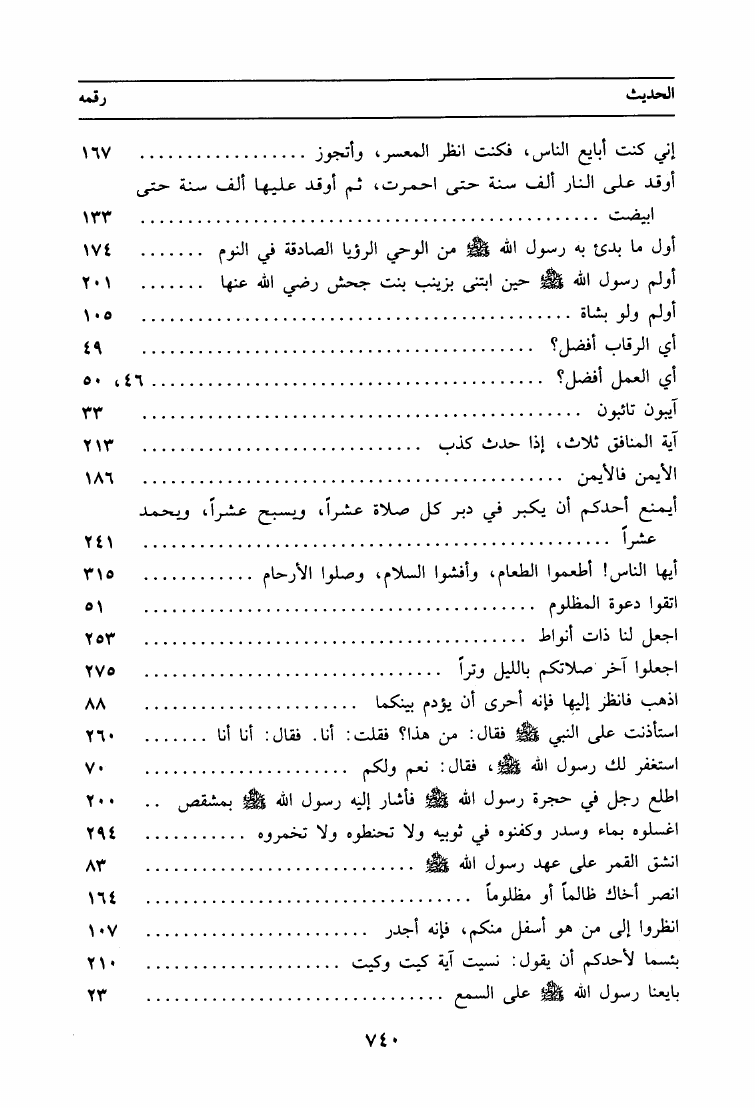 الحديث رقمه
إني كنت أبايع الناس، فكنت انظر المعسر، وأتجوز .................. ١٦٧
أوقد على النار ألف سنة حتى احمرت، ثم أوقد عليها ألف سنة حتى
ابيضت ................................................ ١٣٣
أول ما بدئ به رسول الله ﷺ من الوحي الرؤيا الصادقة في النوم ....... ١٧٤
أولم رسول الله ﷺ حين ابتنى بزينب بنت جحش رضي الله عنها ....... ٢٠١
أولم ولو بشاة .............................................. ١٠٥
أي الرقاب أفضل؟ .......................................... ٤٩
أي العمل أفضل؟ .......................................... ٤٦، ٥٠
آيبون تائبون .............................................. ٣٣
آية المنافق ثلاث، إذا حدث كذب .............................. ٢١٣
الأيمن فالأيمن ............................................. ١٨٦
أيمنع أحدكم أن يكبر في دبر كل صلاة عشراً، ويسبح عشراً، ويحمد
عشراً .................................................. ٢٤١
أيها الناس! أطعموا الطعام، وأفشوا السلام، وصلوا الأرحام ............ ٣١٥
اتقوا دعوة المظلوم .......................................... ٥١
اجعل لنا ذات أنواط ......................................... ٢٥٣
اجعلوا آخر صلاتكم بالليل وتراً ................................ ٢٧٥
اذهب فانظر إليها فإنه أحرى أن يؤدم بينكما ....................... ٨٨
استأذنت على النبي ﷺ فقال: من هذا؟ فقلت: أنا. فقال: أنا أنا ....... ٢٦٠
استغفر لك رسول الله ﷺ، فقال: نعم ولكم ...................... ٧٠
اطلع رجل في حجرة رسول الله ﷺ فأشار إليه رسول الله ﷺ بمشقص .. ٢٠٠
اغسلوه بماء وسدر وكفنوه في ثوبيه ولا تحنطوه ولا تخمروه ........... ٢٩٤
انشق القمر على عهد رسول الله ﷺ ............................. ٨٣
انصر أخاك ظالماً أو مظلوماً ................................... ١٦٤
انظروا إلى من هو أسفل منكم، فإنه أجدر ........................ ١٠٧
بئسما لأحدكم أن يقول: نسيت آية كيت وكيت ..................... ٢١٠
بايعنا رسول الله ﷺ على السمع ................................ ٢٣
٧٤٠